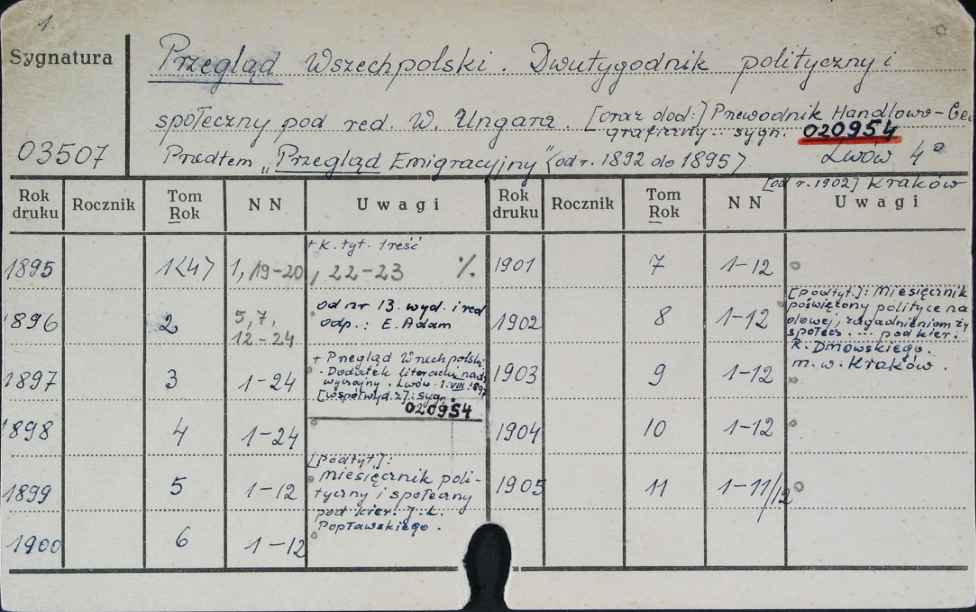 1.
Sygnatura
03507
Przegląd Wszechpolski. Dwutygodnik polityczny i
społeczny pod red. W. Ungara. [oraz dod:] Przewodnik Handlowo-Geo
graficzny .. sygn. 020954
Przedtem "Przegląd Emigracyjny" (od r. 1892 do 1895) Lwów 4°
[od r. 1902] Kraków
Rok druku Rocznik Tom Rok NN Uwagi Rok druku Rocznik Tom Rok NN Uwagi
1895 1(4) 1, 19-20, 22-23 %
+ k. tyt. treść
1896 2 5, 7, 12-24
od nr 13. wyd. i red
odp.: E. Adam
1897 3 1-24
+ Przegląd Wszechpolski.
Dodatek literacki nad
wyczajny. Lwów. 1.VIII.1897
[współwyd. z]: sygn.
020954
1898 4 1-24
1899 5 1-12
[podtyt.]:
miesięcznik poli-
tyczny i społeczny
pod kier. J. L.
Popławskiego.
1900 6 1-12
1901 7 1-12
1902 8 1-12
[podtyt.]: Miesięcznik
poświęcony polityce na
odowej, zagadnieniom ży
społecz. ... pod kier.
R. Dmowskiego.
m. w. Kraków.
1903 9 1-12
1904 10 1-12
1905 11 1-11/12